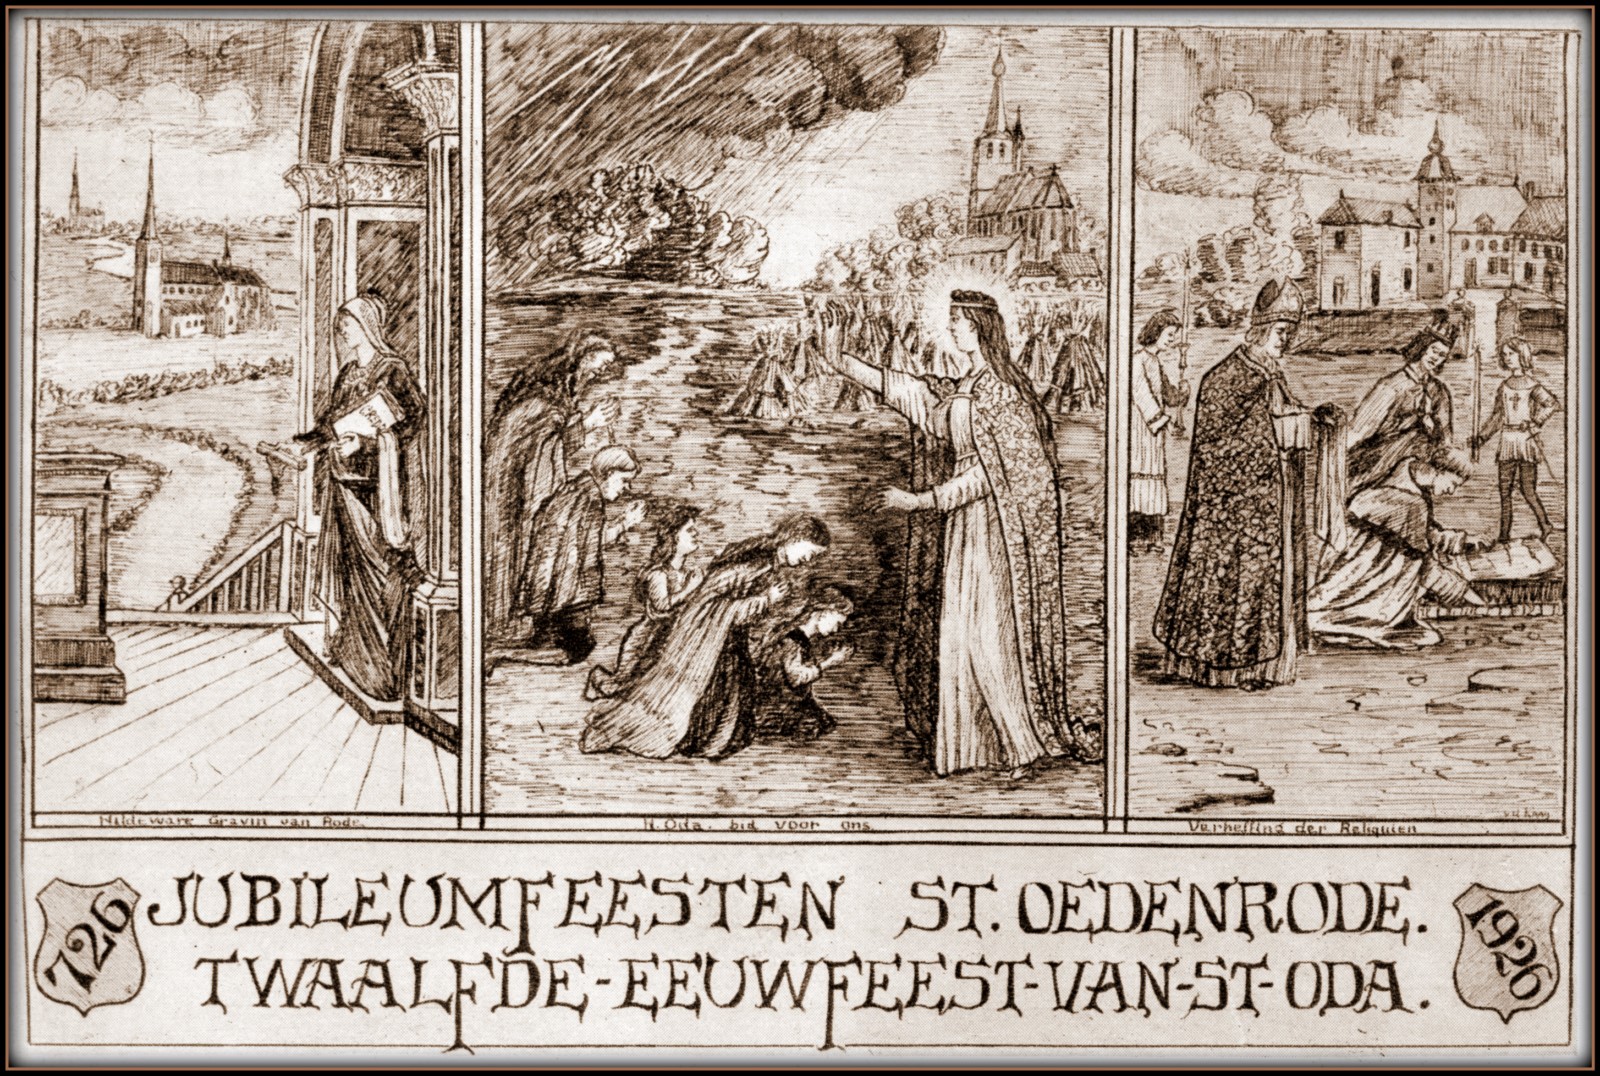 Hildeware Gravin van Rode.
H. Oda. bid voor ons.
Verheffing der Reliquien
726
JUBILEUMFEESTEN ST. OEDENRODE.
TWAALFDE-EEUWFEEST-VAN-ST-ODA.
1926